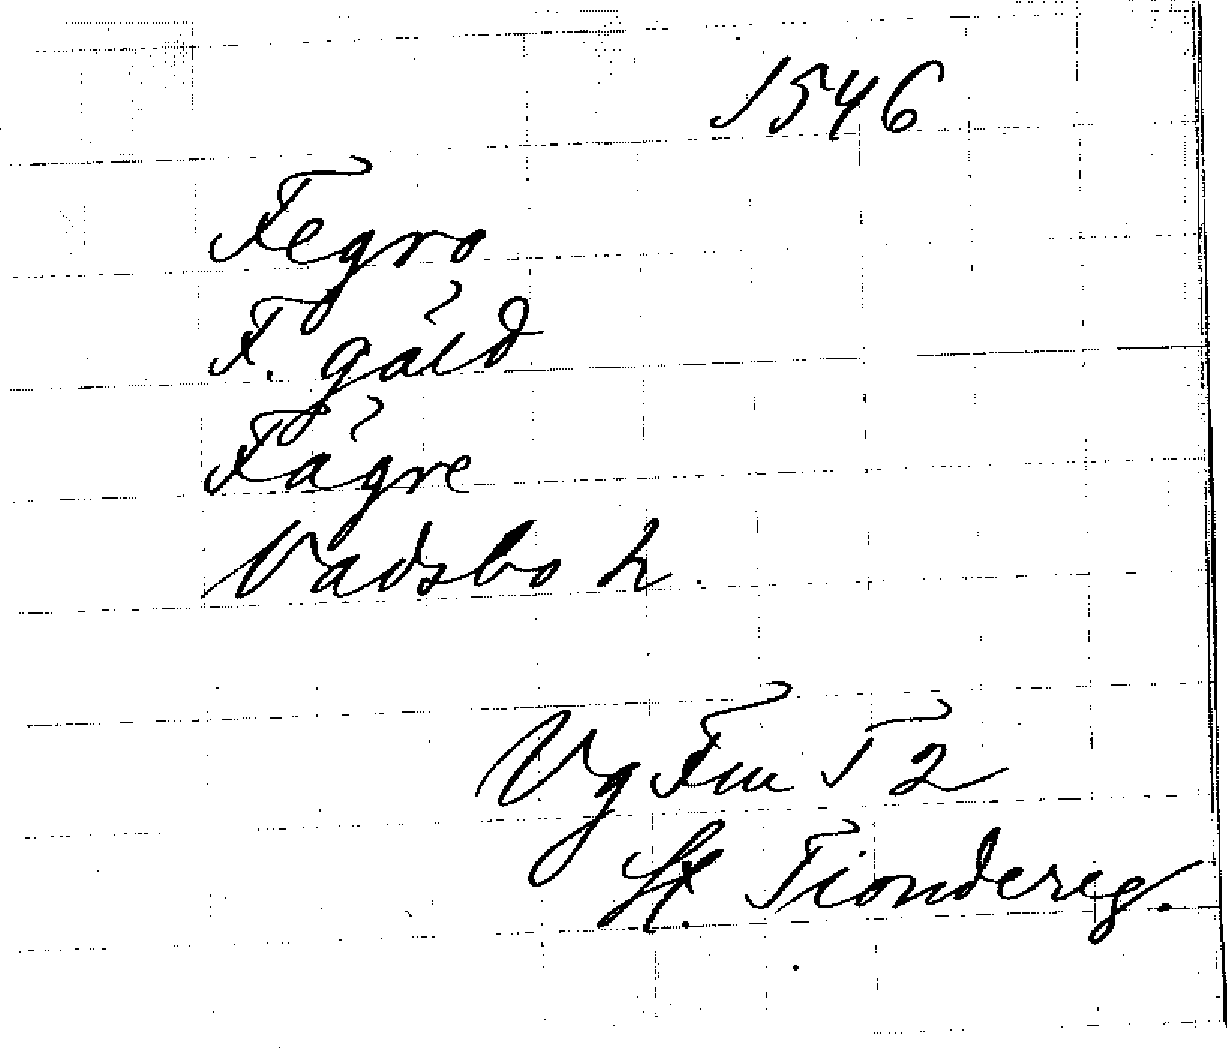 1546
Fegro
F. gäld
Fägre
Vadsbo h.
Vg Fm T 2
st. Tiondereg.